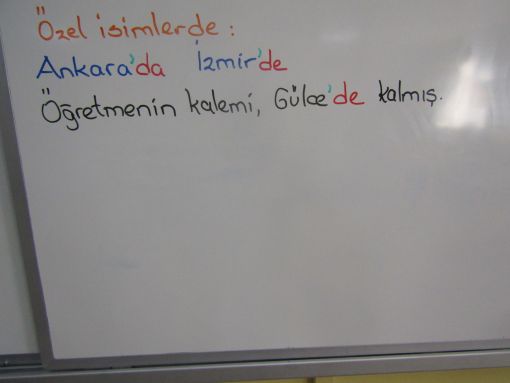 Özel isimlerde :
Ankara'da İzmir'de
Öğretmenin kalemi, Gülce'de kalmış.